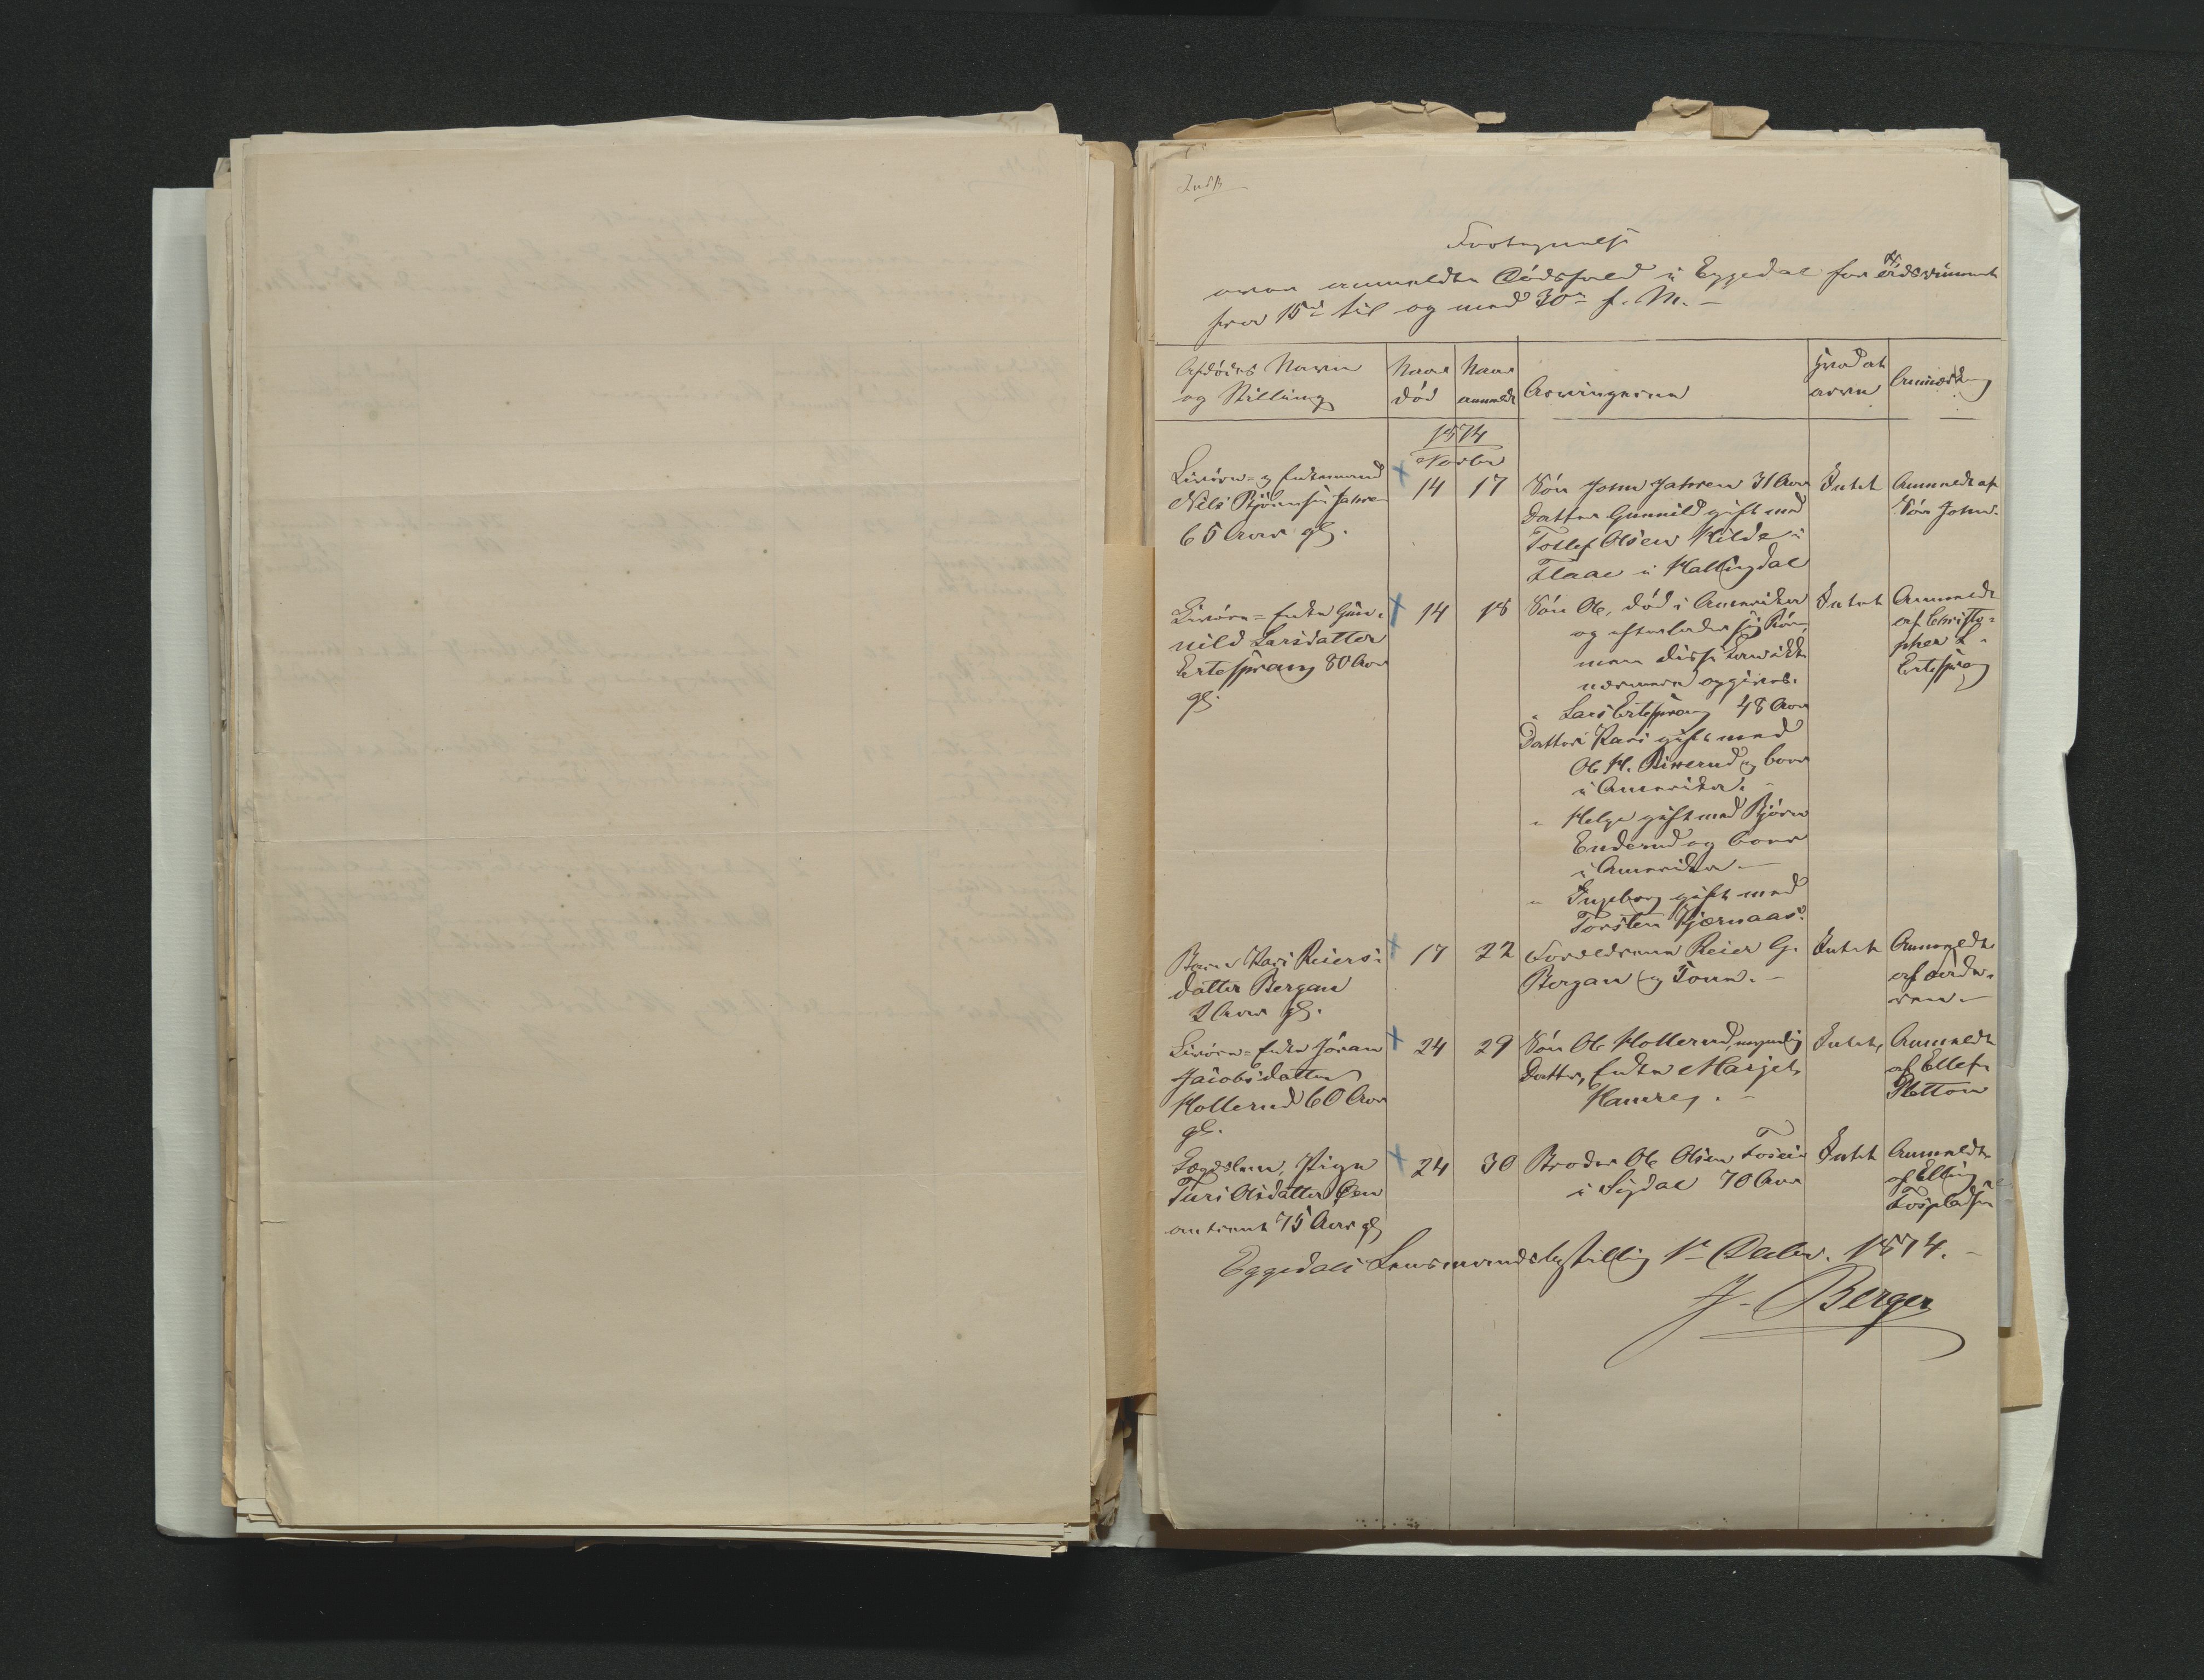 Indk
Fortegnelse
over anmeldte Dödsfald i Eggedal for Tidsrummet
fra 15de til og med 30te f. M. –
Afdödes Navn
og Stilling
Naar
död
Naar
anmeldt
Arvingerne
Hvad at
arve
Anmærkning
1874
Novbr
Livörs- og Enkemand
Nels Björnsen Jahren
65 Aar gl.
14
17
Sön John Jahren 31 Aar
Datter Gunnild gift med
Tollef Olsen Kilde i
Flaae i Hallingdal
Intet
Anmeldt af
Sön John.
Livörs- Enke Gun-
nild Larsdatter
Ertesprang 80 Aar
gl.
14
18
Sön Ole, död i Amerika
og efterlader sig Börn,
men disse kan ikke
nærmere opgives.
" Lars Ertesprang 48 Aar
Datter Kari gift med
Ole H. og boer
i Amerika. –
" Helge gift med Björn
Enderud og boer
i Amerika –
" Ingeborg gift med
Torsten Kjærnaas.
Intet
Anmeldt
af Christo-
pher L.
Ertesprang
Barn Kari Reiers-
datter Bergan
2 Aar gl.
17
22
Forældrene Reier G.
Bergan og Kone. –
Intet
Anmeldt
af Fade-
ren. –
Livörs- Enke Jöran
Jacobsdatter
Hollerud 60 Aar
gl.
24
29
Sön Ole Hollerud, myndig
Datter, Enke Margit
Hamre,. –
Intet,
Anmeldt
af Ellef
Pletton
Lægdslem, Pige
Turi Olsdatter Öen
omtrent 75 Aar gl
24
30
Broder Ole Olsen Fosen
i Sigdal 70 Aar
Intet
Anmeldt
af Elling
Fospladsen
Eggedals Lensmandsbestilling 1te Decbr. 1874. –
J. Berger